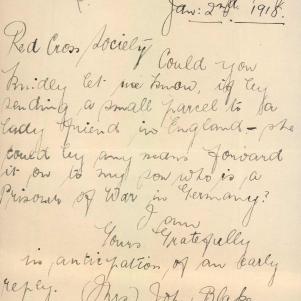 Jan: 2nd 1918.
Red Cross Society
Could you
kindly let me know, if by
sending a small parcel to a
lady friend in England - she
could by any means forward
it on to my son who is a
Prisoner of War in Germany?
I am
Yours Gratefully
in anticipation of an early
reply. (Mrs) Joh. Blake